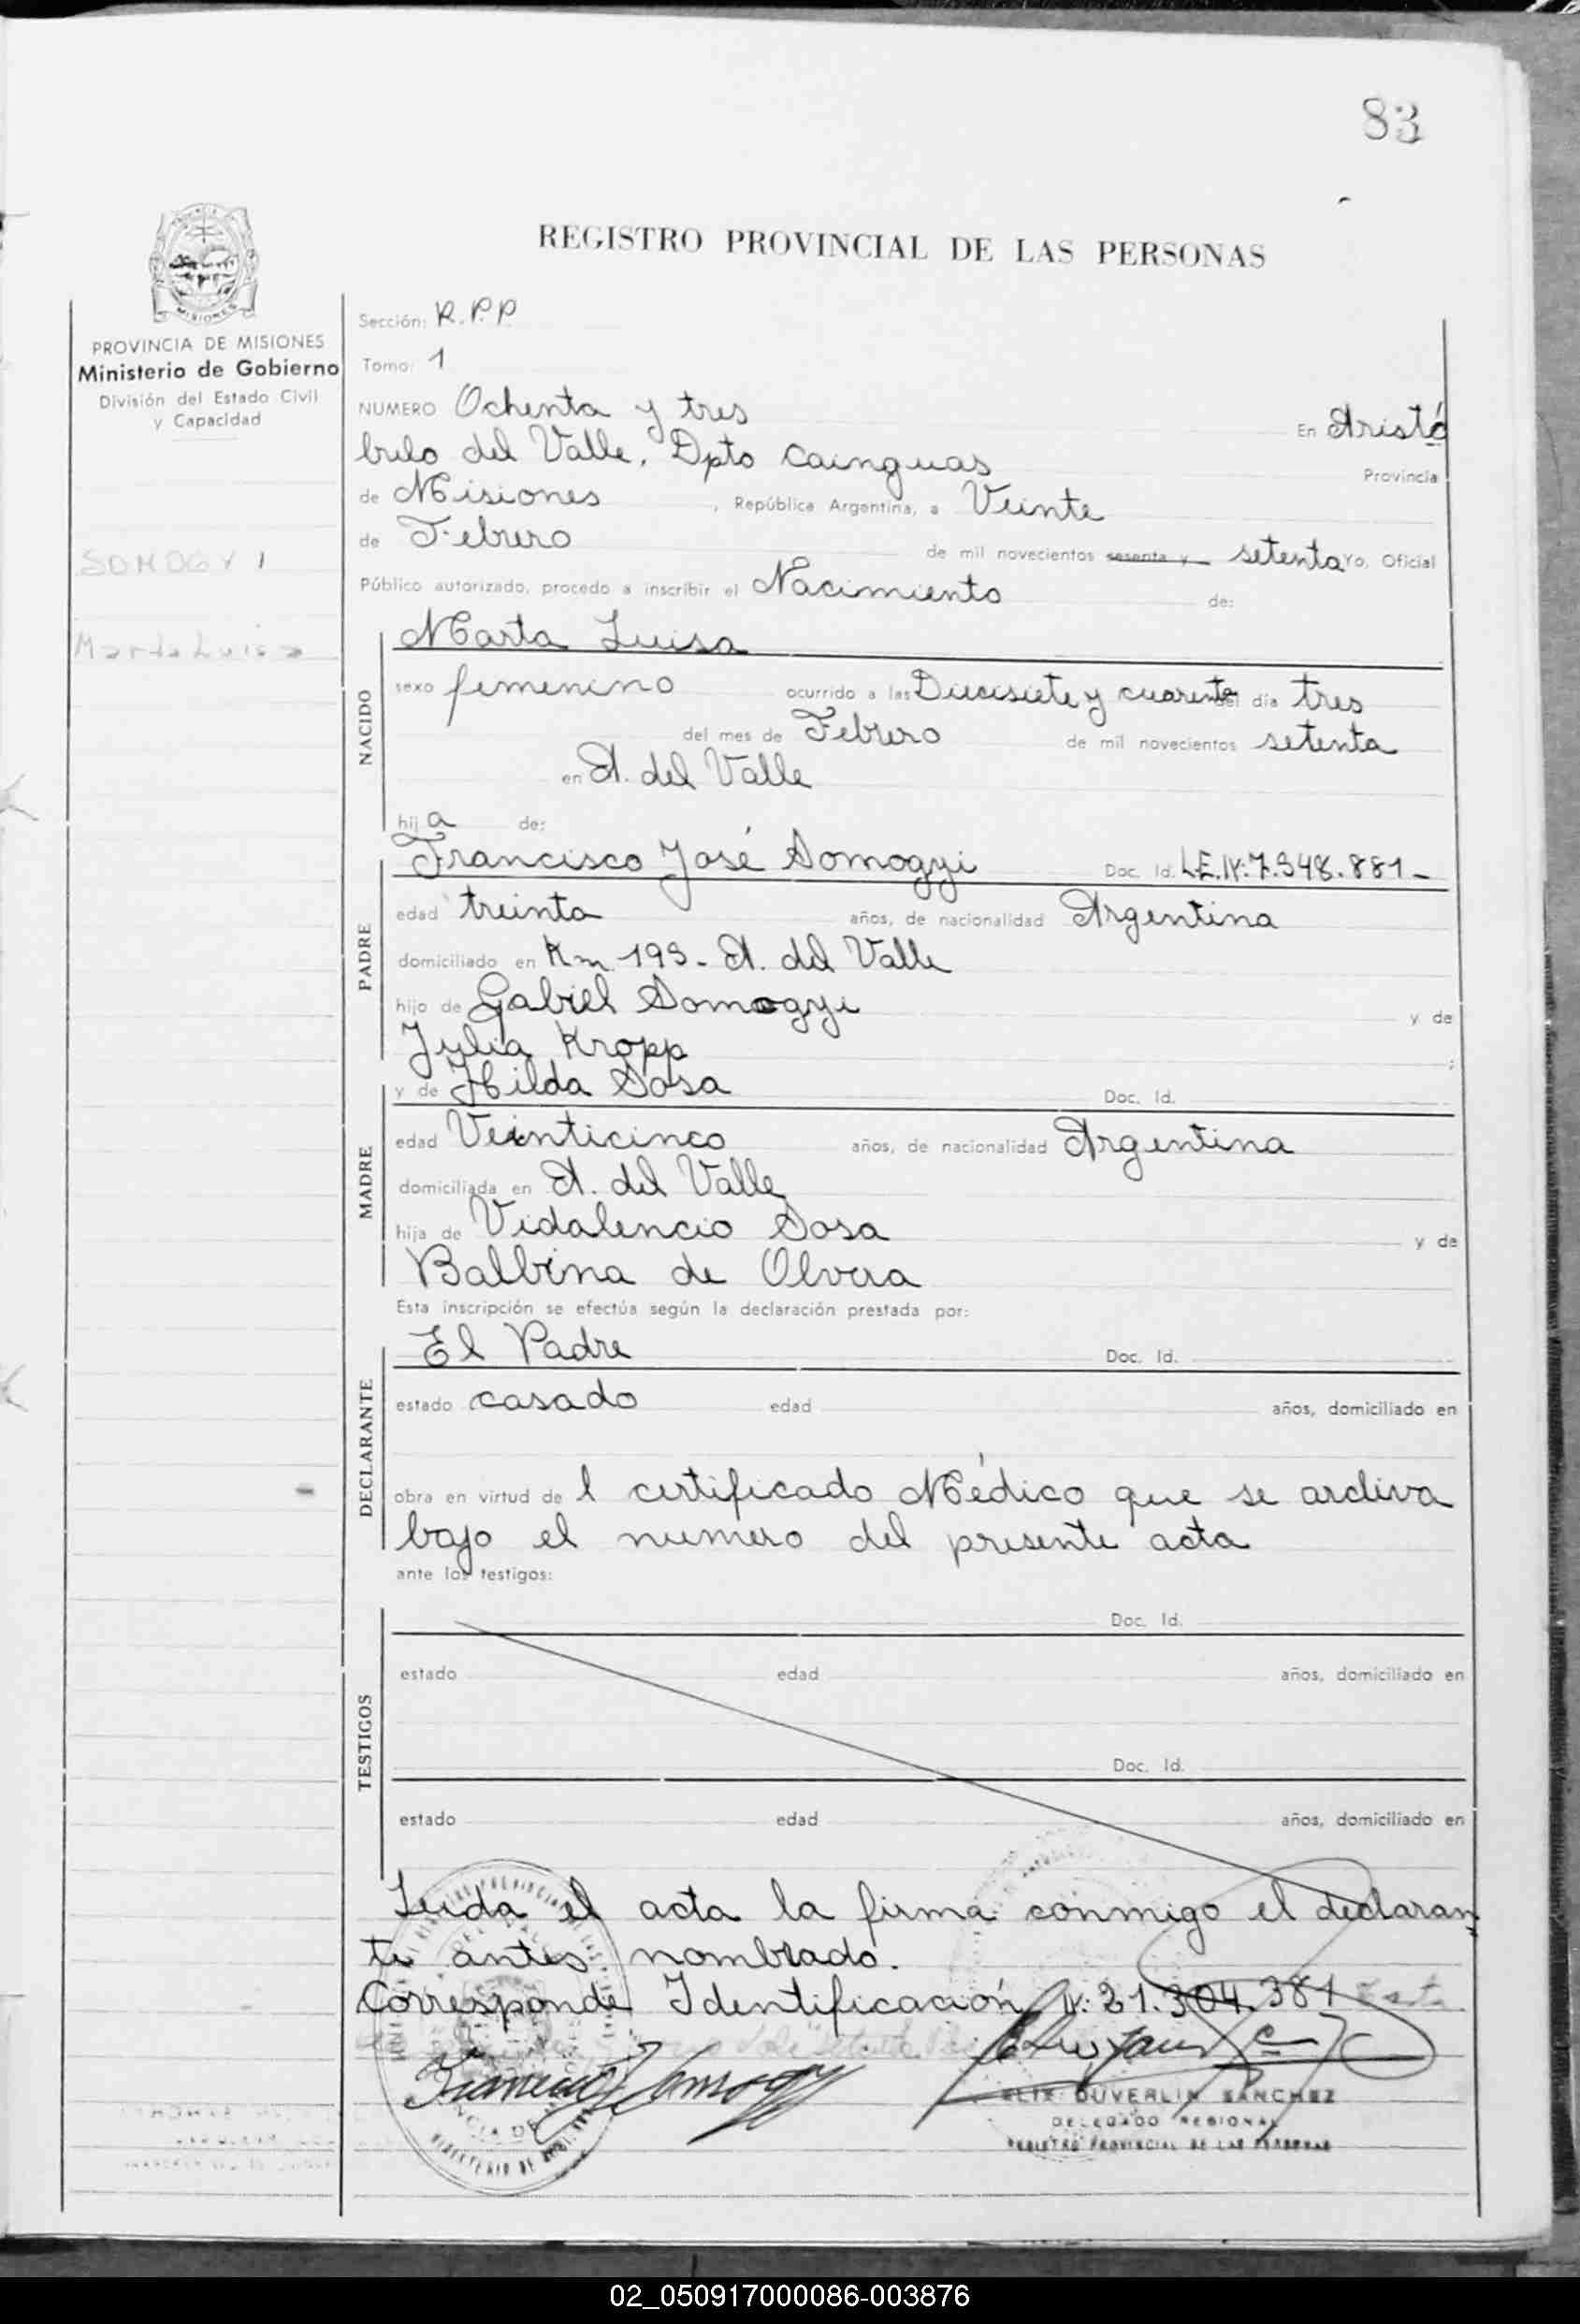 83
REGISTRO PROVINCIAL DE LAS PERSONAS
PROVINCIA DE MISIONES
Ministerio de Gobierno
División del Estado Civil
y Capacidad
SOMOGYI
Marta Luisa
Sección: R.P.P
Tomo: 1
NUMERO Ochenta y tres En Aristó
bulo del Valle, Dpto Cainguas Provincia
de Misiones, República Argentina, a Veinte
de Febrero de mil novecientos sesenta y setenta Yo, Oficial
Público autorizado, procedo a inscribir el Nacimiento de:
NACIDO
Marta Luisa
sexo femenino ocurrido a las Diecisiete y cuarenta del día tres
del mes de Febrero de mil novecientos setenta
en A. del Valle
hij a de:
PADRE
Francisco José Somogyi Doc. Id. L.E.N: 7.548.881-
edad treinta años, de nacionalidad Argentina
domiciliado en Km 195- A. del Valle
hijo de Gabriel Somogyi y de
Julia Kropp ;
MADRE
y de Hilda Sosa Doc. Id.
edad Veinticinco años, de nacionalidad Argentina
domiciliada en A. del Valle
hija de Vidalencio Sosa y de
Balbina de Olvera
Esta inscripción se efectúa según la declaración prestada por:
DECLARANTE
El Padre Doc. Id.
estado casado edad años, domiciliado en
obra en virtud de l certificado Médico que se archiva
bajo el numero del presente acta
ante los testigos:
TESTIGOS
Doc. Id.
estado edad años, domiciliado en
Doc. Id.
estado edad años, domiciliado en
Leida el acta la firma conmigo el declaran
te antes nombrado.
Corresponde Identificación N: 21.304.381
Somogyi
DUVERLIN SANCHEZ
DELEGADO REGIONAL
REGISTRO PROVINCIAL DE LAS PERSONAS
02_050917000086-003876